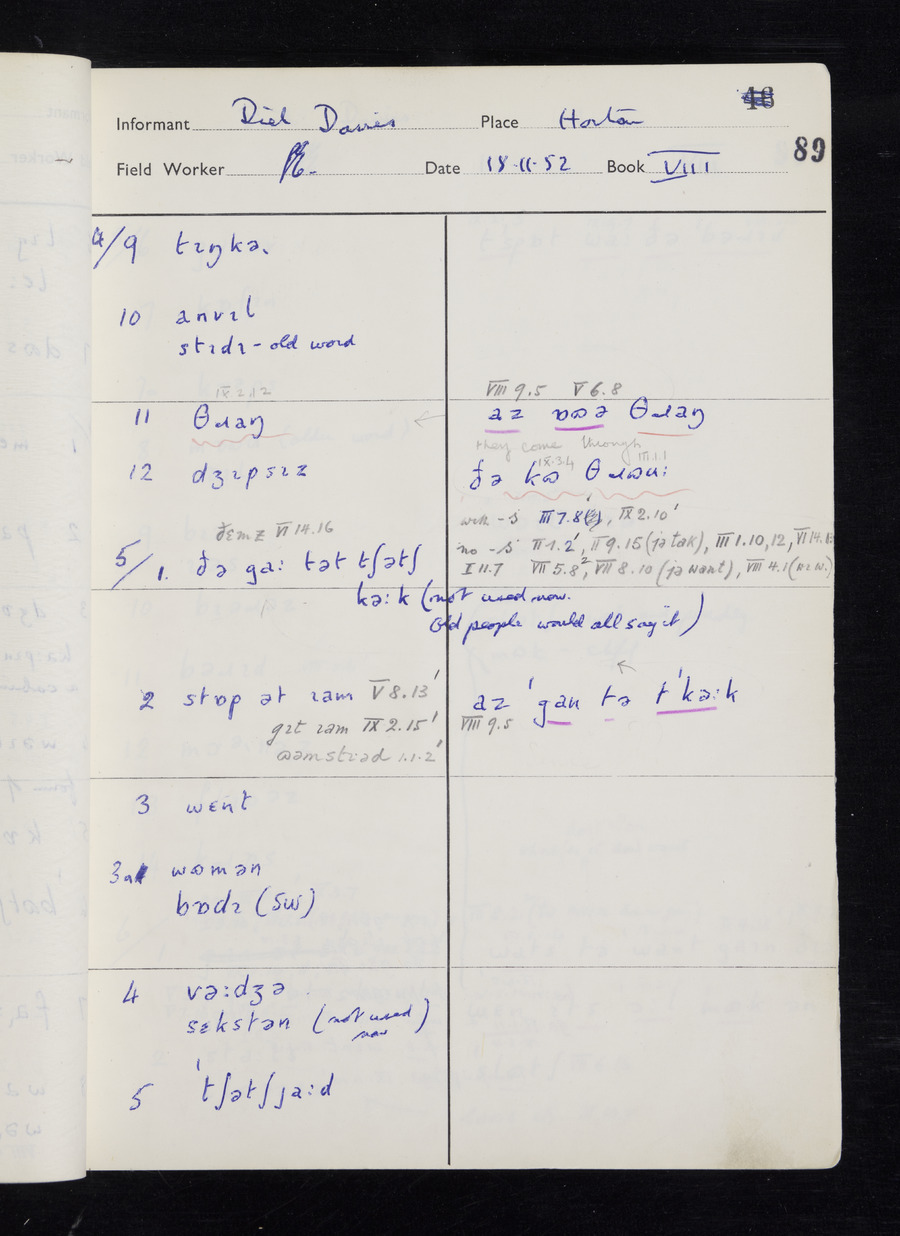 48
Informant Diel Davies Place Horton
89
Field Worker Date 18·11·52 Book VIII
4/9 tɪŋkə.
10 anvɪl
stɪdɪ - old word
IX 2.12
VIII 9.5 V 6.8
11 θɹaŋ ← az ɒʊə θɹaŋ
they come through
IX.3.4 III.1.1
12 dʒɪpsɪz ðə kʊ θɹʊu:
ðɛmz VI 14.16
with -s III 7.8, IX 2.10'
no -s II 1.2', II 9.15 (jə tak), III 1.10, 12, VI 14.1
I 11.7 VII 5.8², VII 8.10 (jə want), VIII 4.1
5/1. ðə ga: tət tʃətʃ
kə:k (not used now.
Old people would all say it)
2 stɒp ət ɪam V 8.13' az 'gan tə t'kə:k
gɪt ɪam IX 2.15' VIII 9.5
ʊəmstɪəd 1.1.2'
3 wɛnt
3a wʊmən
bɒdɪ (sw)
4 və:dʒə
sɛkstən (not used now)
5 'tʃətʃja:d